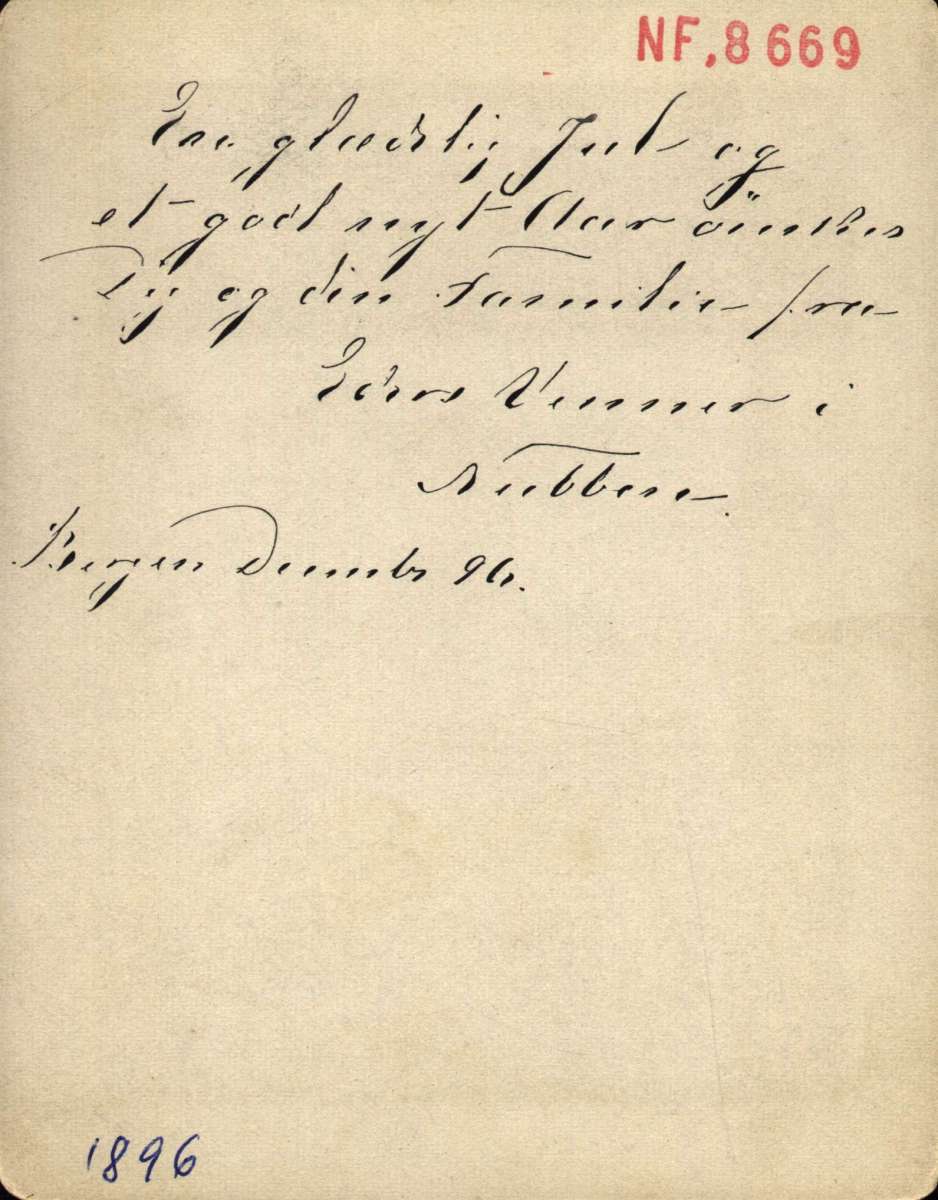 NF.8669
En glædelig Jul og
et godt nyt Aar önskes
Dig og din Familie fra
Eders Venner i
Nubben.
Bergen Decembr 96.
1896